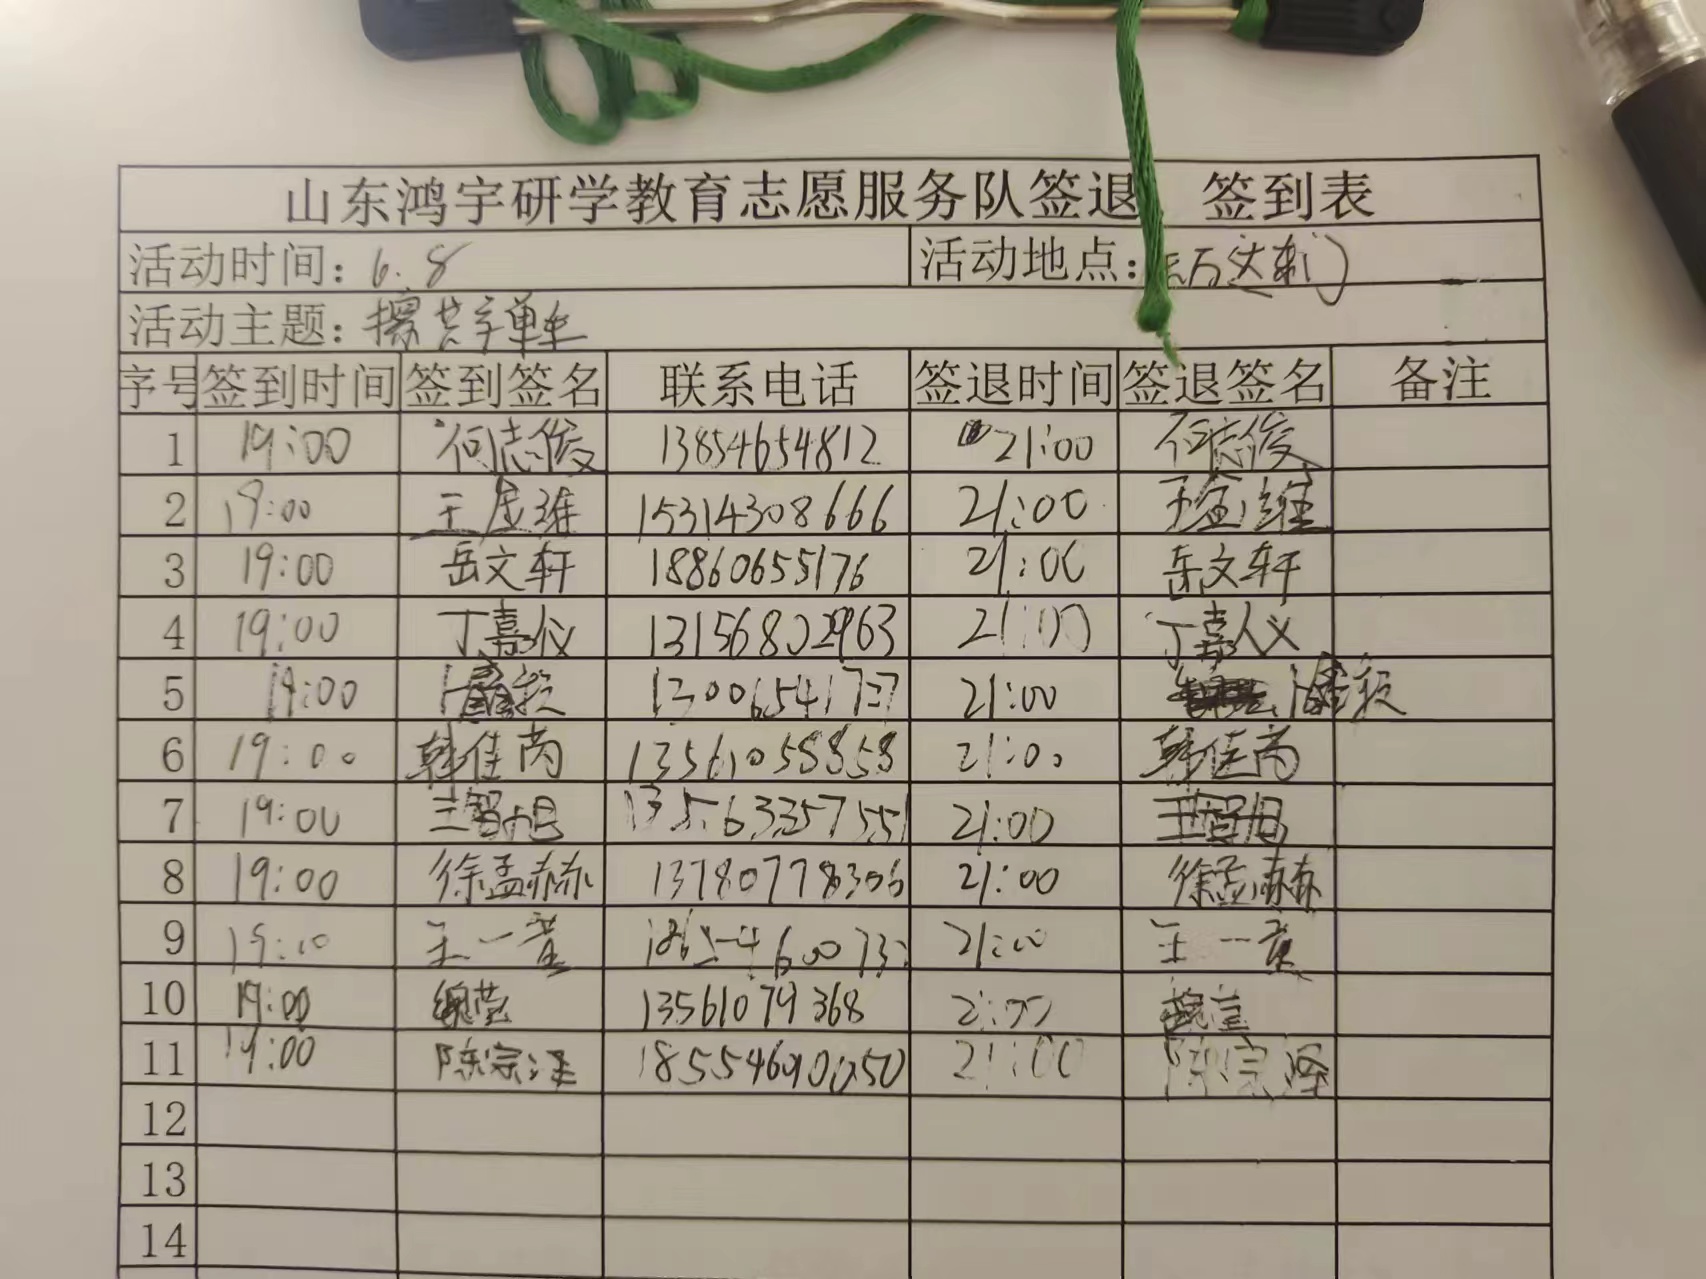 山东鸿宇研学教育志愿服务队签退 签到表
活动时间：6.8 活动地点：万达东门
活动主题：擦共享单车
序号 签到时间 签到签名 联系电话 签退时间 签退签名 备注
1 19:00 何志俊 13854654812 21:00 何志俊
2 19:00 王 维 15314308666 21:00 王 维
3 19:00 岳文轩 18860655176 21:00 岳文轩
4 19:00 丁嘉仪 13156802963 21:00 丁嘉仪
5 19:00 21:00
6 19:00 韩佳芮 13561058858 21:00 韩佳芮
7 19:00 王智旭 13563357551 21:00 王智旭
8 19:00 徐孟赫 13780778306 21:00 徐孟赫
9 19:00 王一 21:00 王一
10 19:00 13561079368 21:00
11 19:00 陈宗泽 21:00 陈宗泽
12
13
14